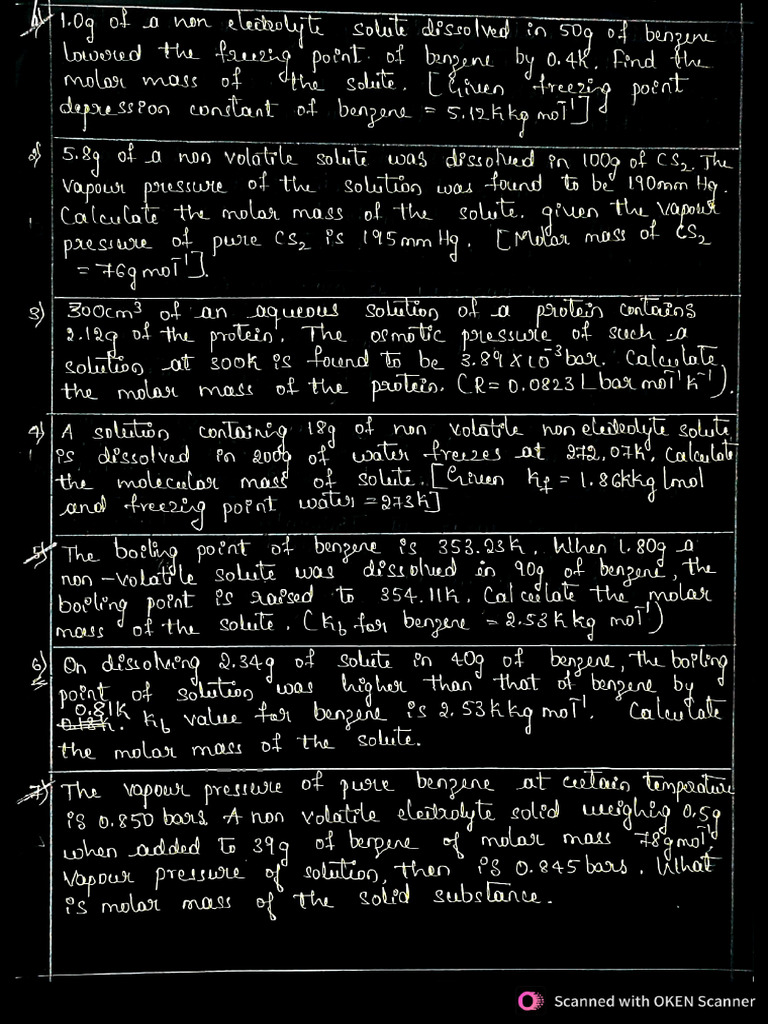 1) 1.0g of a non electrolyte solute dissolved in 50g of benzene
lowered the freezing point of benzene by 0.4K. Find the
molar mass of the solute. [Given freezing point
depression constant of benzene = 5.12K kg mol⁻¹]
2) 5.8g of a non volatile solute was dissolved in 100g of CS₂. The
vapour pressure of the solution was found to be 190mm Hg.
Calculate the molar mass of the solute. given the vapour
pressure of pure CS₂ is 195mm Hg. [Molar mass of CS₂
= 76g mol⁻¹].
3) 300cm³ of an aqueous solution of a protein contains
2.12g of the protein. The osmotic pressure of such a
solution at 300K is found to be 3.89 × 10⁻³ bar. Calculate
the molar mass of the protein. (R = 0.0823 L bar mol⁻¹ K⁻¹).
4) A solution containing 18g of non volatile non electrolyte solute
is dissolved in 200g of water freezes at 272.07K. Calculate
the molecular mass of solute. [Given Kf = 1.86K kg/mol
and freezing point water = 273K]
5) The boiling point of benzene is 353.23K. When 1.80g a
non-volatile solute was dissolved in 90g of benzene, the
boiling point is raised to 354.11K. Calculate the molar
mass of the solute. (Kb for benzene = 2.53K kg mol⁻¹)
6) On dissolving 2.34g of solute in 40g of benzene, the boiling
point of solution was higher than that of benzene by
0.81K
0.18K. Kb value for benzene is 2.53K kg mol⁻¹. Calculate
the molar mass of the solute.
7) The vapour pressure of pure benzene at certain temperature
is 0.850 bars. A non volatile electrolyte solid weighing 0.5g
when added to 39g of benzene of molar mass 78g mol⁻¹.
Vapour pressure of solution, then is 0.845 bars. What
is molar mass of the solid substance.
Scanned with OKEN Scanner